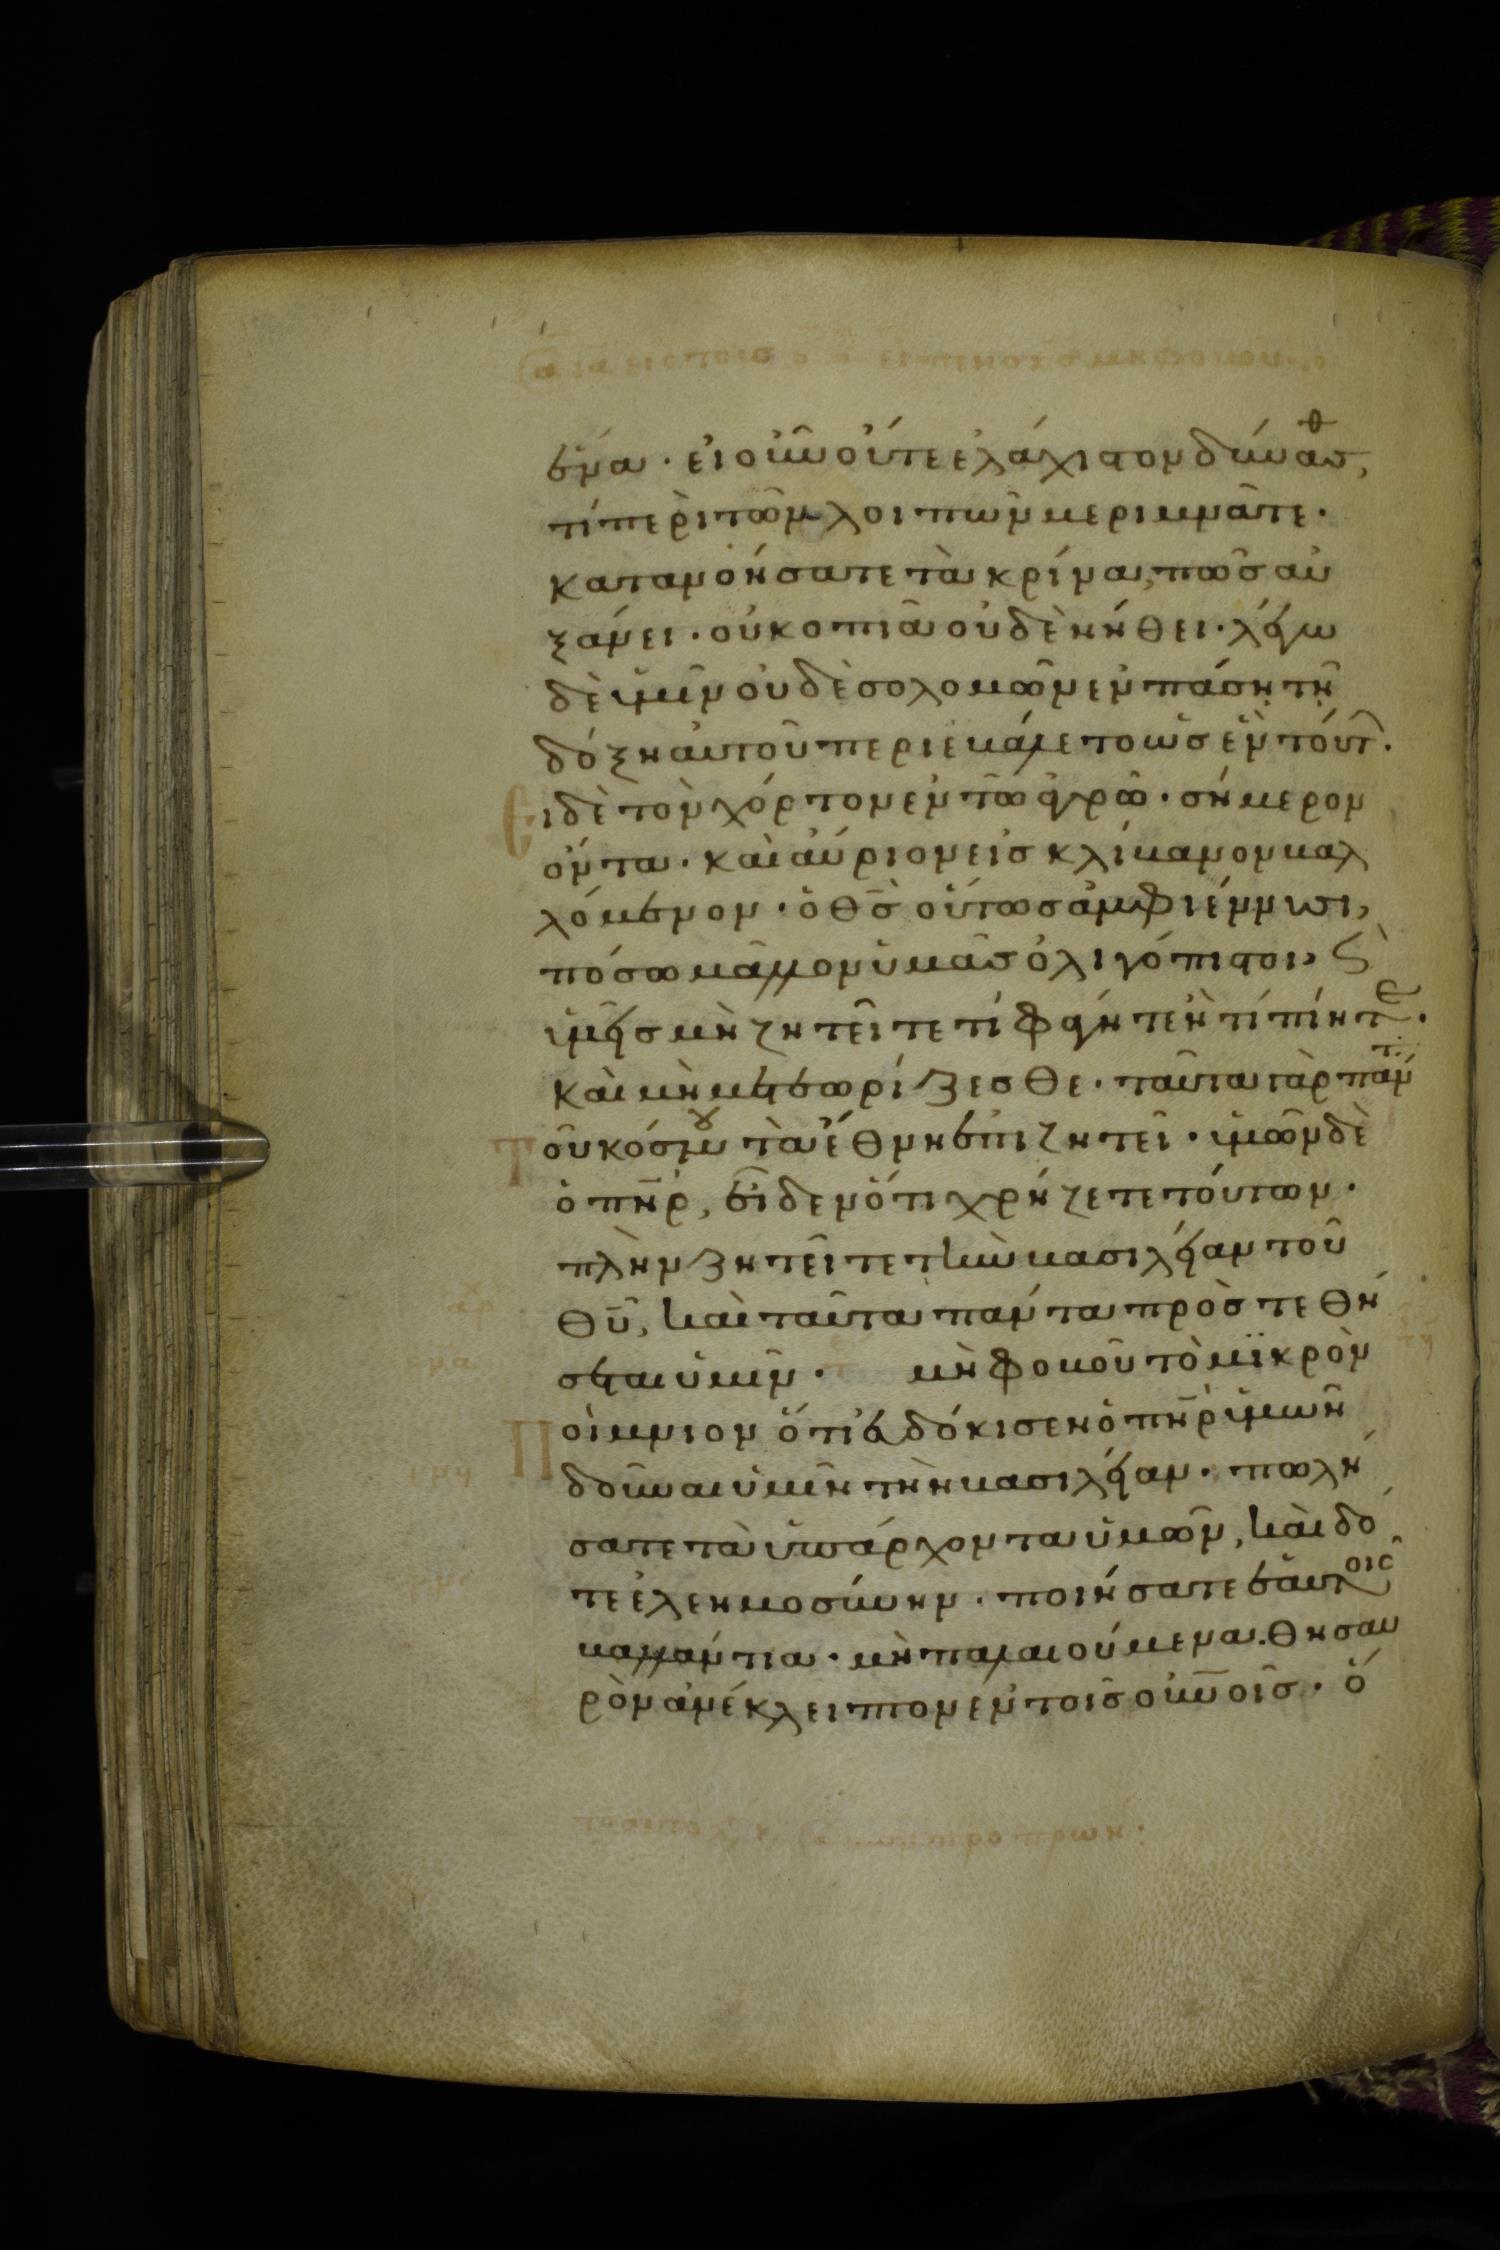 ἕνα· εἰ οὖν οὔτε ἐλάχιστον δύνασθ,
τί περὶ τῶν λοιπῶν μεριμνᾶτε·
κατανοήσατε τὰ κρίνα, πῶς αὐ
ξάνει· οὐ κοπιᾶ οὐδὲ νήθει· λέγω
δὲ ὑμῖν οὐδὲ σολομῶν ἐν πάσῃ τῇ
δόξη αὐτοῦ περιεβάλετο ὡς ἓν τούτ·
Ει δὲ τὸν χόρτον ἐν τῶ ἀγρῶ· σήμερον
ὄντα· καὶ αὔριον εἰς κλίβανον βαλ
λόμενον· ὁ θς οὕτως ἀμφιέννυσι,
πόσω μᾶλλον ὑμᾶς ὀλιγόπιστοι, Ϛ
ὑμεῖς μὴ ζητεῖτε τί φάγητε ἢ τί πίητε·
καὶ μὴ μετεωρίζεσθε· ταῦτα γὰρ πάντ
Τοῦ κόσμου τὰ ἔθνη ἐπιζητεῖ· ὑμῶν δὲ
ὁ πηρ, οἶδεν ὅτι χρήζετε τούτων·
πλὴν ζητεῖτε τὴν βασιλείαν τοῦ
θυ, καὶ ταῦτα πάντα προστεθή
σεται ὑμῖν· μὴ φοβοῦ τὸ μϊκρὸν
ποίμνιον ὅτι εὐδόκισεν ὁ πηρ ὑμῶν
δοῦναι ὑμῖν τὴν βασιλείαν· πωλή
σατε τὰ ὑπάρχοντα ὑμῶν, καὶ δό
τε ἐλεημοσύνην· ποιήσατε ἑαυτοῖς
βαλλάντια· μὴ παλαιούμενα. θησαυ
ρὸν ἀνέκλειπον ἐν τοῖς οὐνοῖς· ὅ